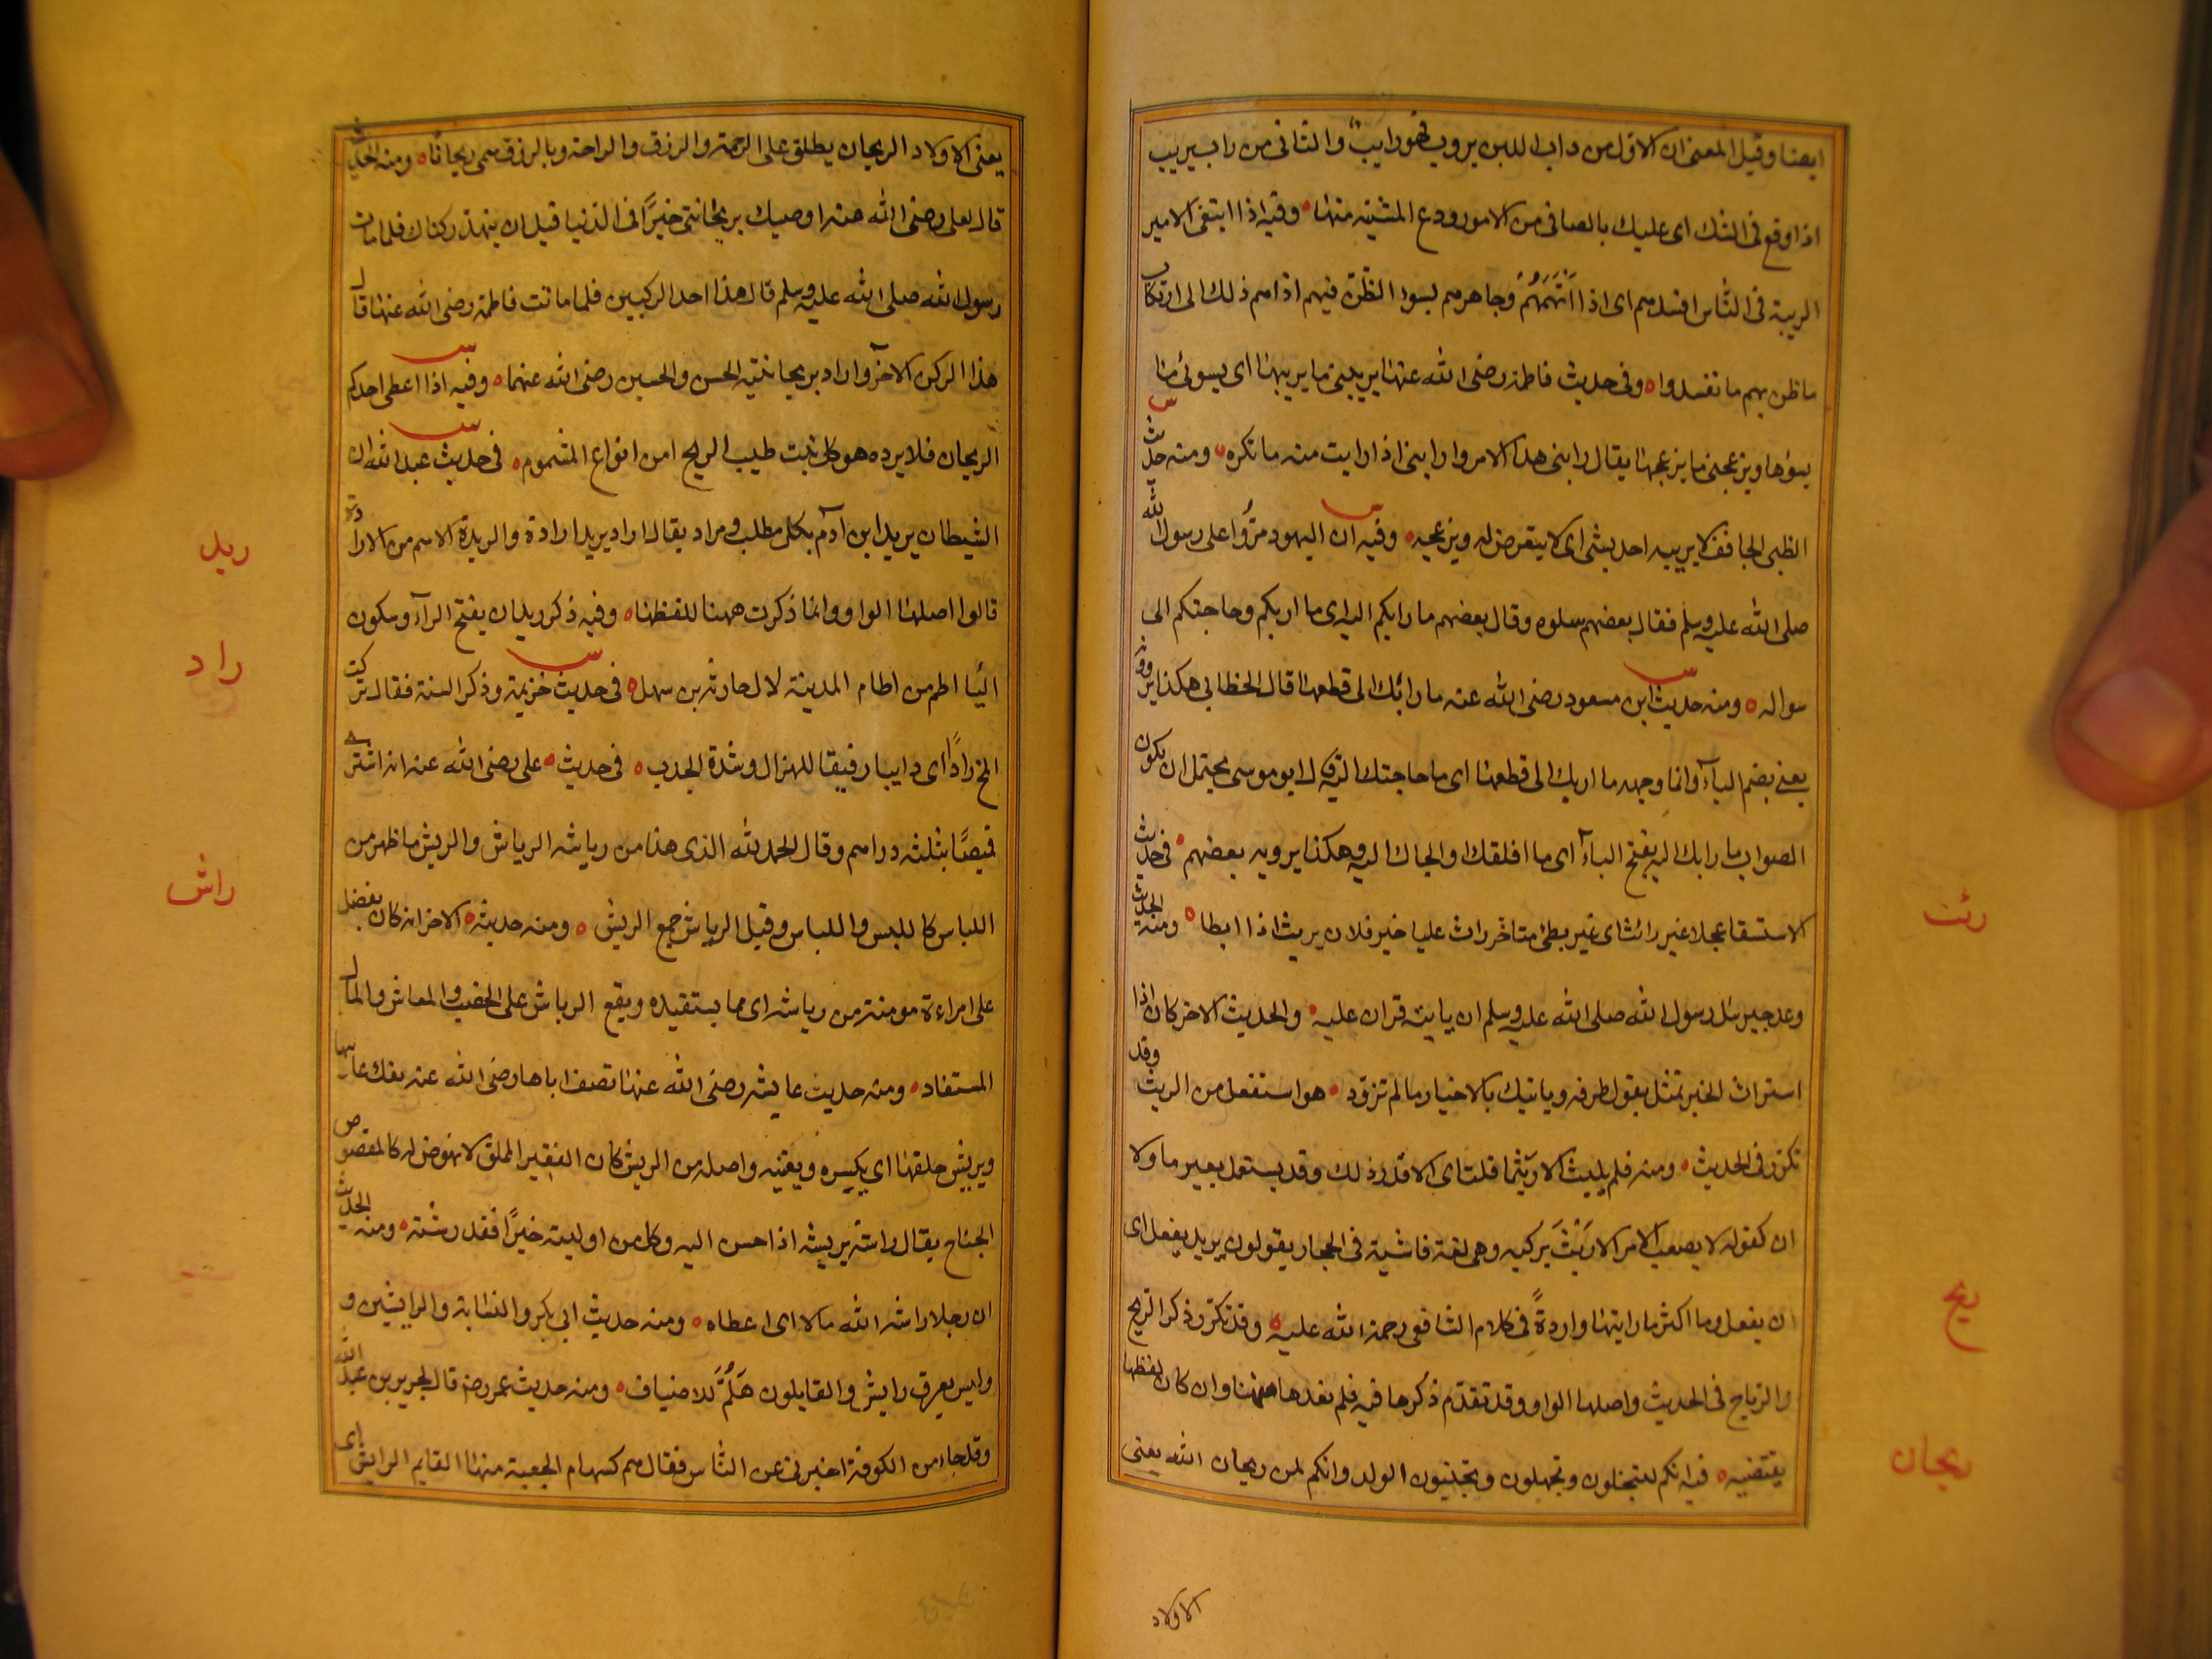 ايضا وقيل المعنى ان الاول من داب اللبن يروب فهو رايب والثاني من راب يريب
اذا وقع في الشك اى عليك بالصافي من الامور ودع المشتبه منها وفيه اذا ابتغى الامير
الريبة في الناس افسدهم اى اذا اتهمهم وجاهرهم بسوء الظن فيهم اداهم ذلك الى ارتكاب
ما ظن بهم ما نفسدوا وفي حديث فاطمة رضى الله عنها يريبني ما يريبها اى يسوئ ما
يسؤها ويزعجني ما يزعجها يقال رابني هذا الامر وارابني اذا رايت منه ما تكره ومنه حديث
الظبى الحاقف لا يريبه احد بشى اى لا يتعرض له ويزعجه وفيه ان اليهود مروا على رسول الله
صلى الله عليه وسلم فقال بعضهم سلوه وقال بعضهم ما رابكم اليه اى ما اربكم وحاجتكم الى
سواله ومنه حديث ابن مسعود رضى الله عنه ما رابك الى قطعها قال الخطابي هكذا يروونه
يعني بضم الباء وانما وجهه ما اربك الى قطعها اى ما حاجتك اليه قال ابو موسى يحتمل ان يكون
الصواب ما رابك اليه بفتح الباء اى ما اقلقك والجاك اليه وهكذا يرويه بعضهم في حديث
الاستسقا عجلا غير رائث اى غير بطئ متاخر راث علينا خبر فلان يريث اذا ابطا ومنه الحديث
وعد جبرئل رسول الله صلى الله عليه وسلم ان ياتيه فراث عليه والحديث الاخر كان اذا
استراث الخبر تمثل بقول طرفه وياتيك بالاخبار ما لم تزود هو استفعل من الريث وقد
تكرر في الحديث ومنه فلم يلبث الا ريثما قلت اى الا قدر ذلك وقد يستعمل بغير ما ولا
ان كقوله لا يصعب الامر الا ريث يركبه وهى لغة فاشية في الحجاز يقولون يريد يفعل اى
ان يفعل وما اكثر ما رايتها واردة في كلام الشافعى رحمة الله عليه وقد تكرر ذكر الريح
والرياح في الحديث واصلها الواو وقد تقدم ذكرها فيه فلم نعدها ههنا وان كان لفظها
يقتضيه فيه انكم لتبخلون وتجهلون وتجبنون الولد وانكم لمن ريحان الله يعنى
الاولاد
رئت
ريح
ريحان
يعنى الاولاد الريحان يطلق على الرحمة والرزق والراحة وبالرزق سمى ريحانا ومنه الحديث
قال لعلى رضى الله عنه اوصيك بريحانتي خيرا في الدنيا قبل ان ينهد ركناك فلما مات
رسول الله صلى الله عليه وسلم قال هذا احد الركنين فلما ماتت فاطمة رضى الله عنها قال
هذا الركن الآخر واراد بريحانتيه الحسن والحسين رضى الله عنهما وفيه اذا اعطى احدكم
الريحان فلا يرده هو كل نبت طيب الريح من انواع المشموم في حديث عبد الله ان
الشيطان يريد ابن آدم بكل مطلب ومراد يقال اراد يريد ارادة والريدة الاسم من الارادة
قالوا اصلها الواو وانما ذكرت ههنا للفظها وفيه ذكر ريدان بفتح الرآء وسكون
اليا اطم من اطام المدينة لال حارثه بن سهل في حديث خزيمة وذكر السنة فقال تركت
المخ رادا اى دايبا رقيقا للهزال وشدة الجدب في حديث على رضى الله عنه انه اشترى
قميصا بثلثه دراهم وقال الحمد لله الذى هذا من رياشه الرياش والريش ما ظهر من
اللباس كاللبس واللباس وقيل الرياش جمع الريش ومنه حديثه الاخر انه كان يفضل
على امراءة مومنة من رياشه اى مما يستفيده ويقع الرياش على الخصب والمعاش والمال
المستفاد ومنه حديث عايشه رضى الله عنها تصف اباها رضى الله عنه يفك عانيها
ويريش مملقها اى يكسوه ويعينه واصله من الريش كان الفقير المملق لا نهوض له كالمقصوص
الجناح يقال راشه يريشه اذا احسن اليه وكل من اوليته خيرا فقد رشته ومنه الحديث
ان رجلا راشه الله مالا اى اعطاه ومنه حديث ابي بكر والنسابة والرايشين و
وليس يعرف رايش والقايلون هلم للاضياف ومنه حديث عمر رضه قال لجرير بن عبد الله
وقد جاء من الكوفة اخبرني عن الناس فقال هم كسهام الجعبة منها القايم الرايش اى
ريد
راد
راش